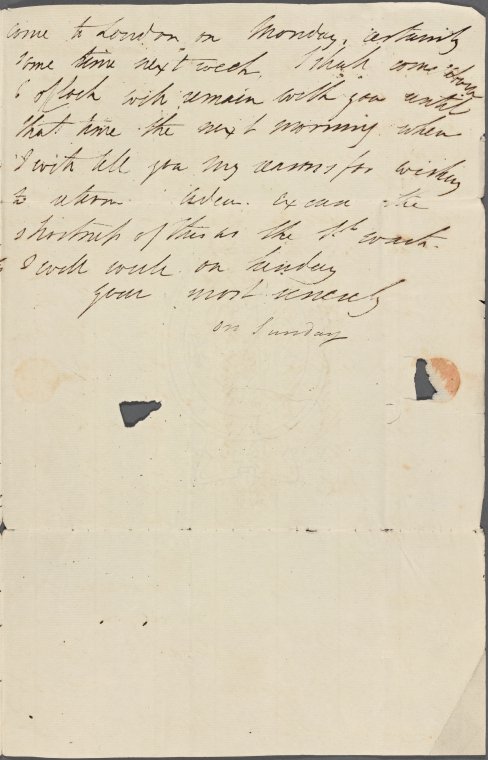 come to London on Monday, certainly
some time next week, I shall come about
6 oClock will remain with you until
that time the next morning when
I will tell you my reasons for wishing
to return Adieu. Excuse the
shortness of this as the Pt waits.
I will write on Sunday
your most sincerely
on Sunday